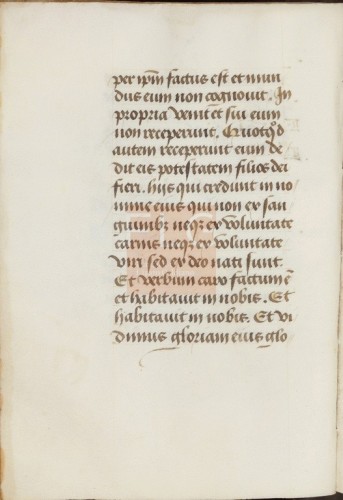 per ip̄m factus est et mun
dus eum non cognouit. In
propria venit et sui eum
non receperunt. Quotq̇d
autem receperunt eum de
dit eis potestatem filios dei
fieri. hijs qui credunt in no
mine eius qui non ex san
guinibꝫ neqꝫ ex voluntate
carnis neqꝫ ex voluntate
viri sed ex deo nati sunt.
Et verbum caro factum ē
et habitauit in nobis. Et
habitauit in nobis. Et vi
dimus gloriam eius glo